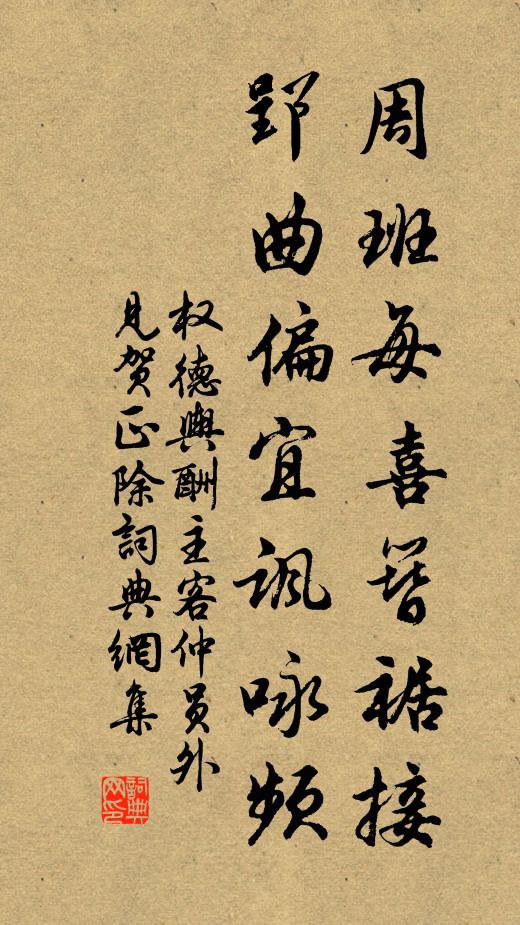 周班每喜簪裾接
郢曲偏宜諷咏頻
权德輿酬主客仲員外
見賀正除詞典網集
詞典網印